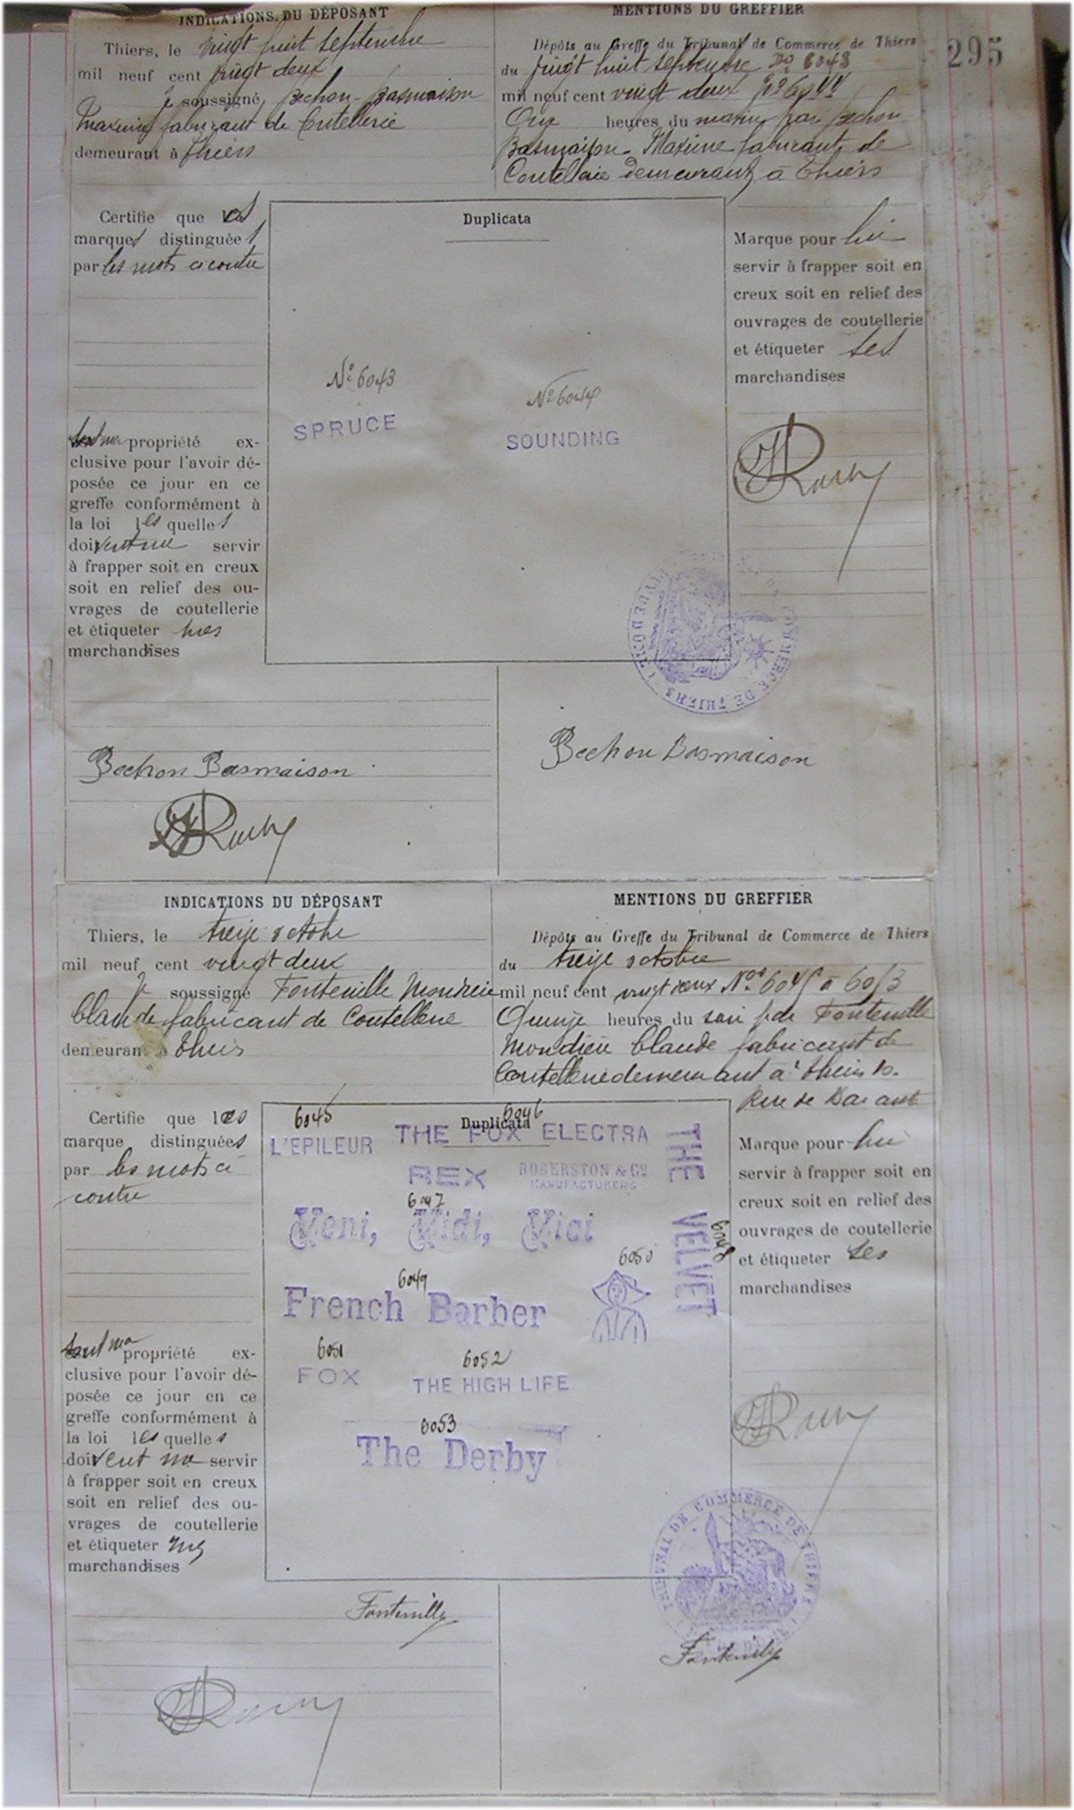 295
INDICATIONS DU DÉPOSANT
Thiers, le vingt huit septembre
mil neuf cent vingt deux
Je soussigné, Bechon-Basmaison
Maxime fabricant de Coutellerie
demeurant à Thiers
MENTIONS DU GREFFIER
Dépôts au Greffe du Tribunal de Commerce de Thiers
du vingt huit septembre No 6043
mil neuf cent vingt deux No 6044
heures du matin par Bechon-
Basmaison Maxime fabricant de
Coutellerie demeurant à Thiers
Certifie que les
marques distinguées
par les mots ci contre
sont ma propriété ex-
clusive pour l'avoir dé-
posée ce jour en ce
greffe conformément à
la loi lesquelles
doivent me servir
à frapper soit en creux
soit en relief des ou-
vrages de coutellerie
et étiqueter mes
marchandises
Duplicata
No 6043
SPRUCE
No 6044
SOUNDING
Marque pour lui
servir à frapper soit en
creux soit en relief des
ouvrages de coutellerie
et étiqueter ses
marchandises
TRIBUNAL DE COMMERCE DE THIERS
Bechon Basmaison
Bechon Basmaison
INDICATIONS DU DÉPOSANT
Thiers, le treize octobre
mil neuf cent vingt deux
Je soussigné Fontenille Mondière
Claude fabricant de Coutellerie
demeurant à Thiers
MENTIONS DU GREFFIER
Dépôts au Greffe du Tribunal de Commerce de Thiers
du treize octobre
mil neuf cent vingt deux Nos 6045 à 6053
Quinze heures du soir par Fontenille
Mondière Claude fabricant de
Coutellerie demeurant à Thiers
Rue de
Certifie que les
marque distinguées
par les mots ci
contre
sont ma propriété ex-
clusive pour l'avoir dé-
posée ce jour en ce
greffe conformément à
la loi lesquelles
doivent me servir
à frapper soit en creux
soit en relief des ou-
vrages de coutellerie
et étiqueter mes
marchandises
Duplicata
6045
L'EPILEUR
6046
THE FOX ELECTRA
REX
ROBERSTON & Co
MANUFACTURERS
6047
Veni, Vidi, Vici
6048
THE VELVET
6049
French Barber
6050
6051
FOX
6052
THE HIGH LIFE
6053
The Derby
Marque pour lui
servir à frapper soit en
creux soit en relief des
ouvrages de coutellerie
et étiqueter ses
marchandises
TRIBUNAL DE COMMERCE DE THIERS
Fontenille
Fontenille